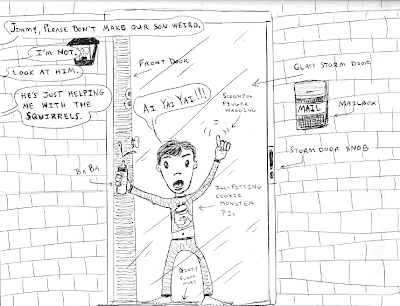 JIMMY, PLEASE DON'T MAKE OUR SON WEIRD.
I'M NOT.
LOOK AT HIM.
HE'S JUST HELPING
ME WITH THE
SQUIRRELS.
FRONT DOOR
AI YAI YAI!!!
SCORNFUL
FINGER
WAGGING
GLASS STORM DOOR
MAIL
MAILBOX
STORM DOOR KNOB
BABA
ILL-FITTING
COOKIE
MONSTER
PJs
DIRTY
FLOOR
MAT